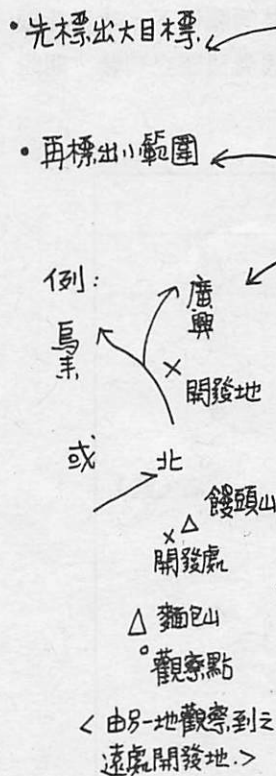 •先標出大目標
•再標出小範圍
例:
烏耒
廣興
×
開發地
或
北
饅頭山
×△
開發處
△麵包山
°觀察點
<由另一地觀察到之
遠處開發地.>